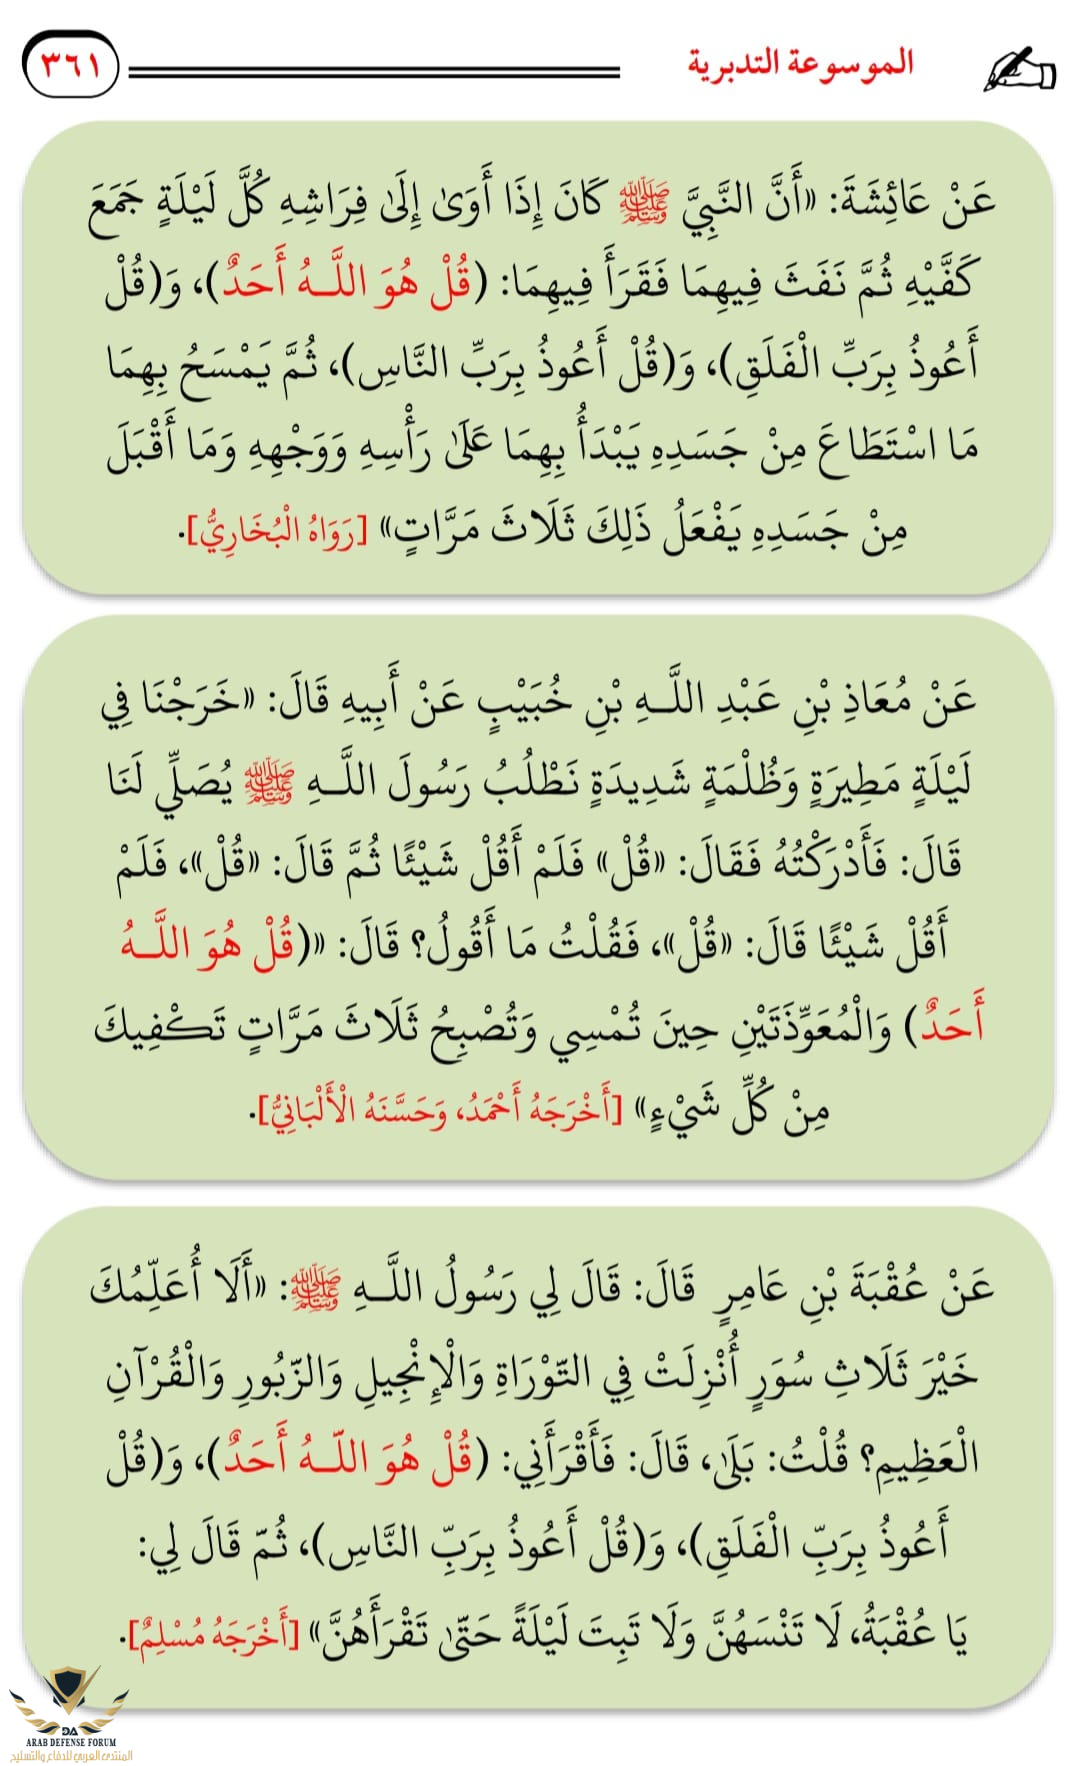 الموسوعة التدبرية
٣٦١
عَنْ عَائِشَةَ: «أَنَّ النَّبِيَّ ﷺ كَانَ إِذَا أَوَىٰ إِلَىٰ فِرَاشِهِ كُلَّ لَيْلَةٍ جَمَعَ
كَفَّيْهِ ثُمَّ نَفَثَ فِيهِمَا فَقَرَأَ فِيهِمَا: (قُلْ هُوَ اللَّـهُ أَحَدٌ)، وَ(قُلْ
أَعُوذُ بِرَبِّ الْفَلَقِ)، وَ(قُلْ أَعُوذُ بِرَبِّ النَّاسِ)، ثُمَّ يَمْسَحُ بِهِمَا
مَا اسْتَطَاعَ مِنْ جَسَدِهِ يَبْدَأُ بِهِمَا عَلَىٰ رَأْسِهِ وَوَجْهِهِ وَمَا أَقْبَلَ
مِنْ جَسَدِهِ يَفْعَلُ ذَلِكَ ثَلَاثَ مَرَّاتٍ» [رَوَاهُ الْبُخَارِيُّ].
عَنْ مُعَاذِ بْنِ عَبْدِ اللَّـهِ بْنِ خُبَيْبٍ عَنْ أَبِيهِ قَالَ: «خَرَجْنَا فِي
لَيْلَةٍ مَطِيرَةٍ وَظُلْمَةٍ شَدِيدَةٍ نَطْلُبُ رَسُولَ اللَّـهِ ﷺ يُصَلِّي لَنَا
قَالَ: فَأَدْرَكْتُهُ فَقَالَ: «قُلْ» فَلَمْ أَقُلْ شَيْئًا ثُمَّ قَالَ: «قُلْ»، فَلَمْ
أَقُلْ شَيْئًا قَالَ: «قُلْ»، فَقُلْتُ مَا أَقُولُ؟ قَالَ: «(قُلْ هُوَ اللَّـهُ
أَحَدٌ) وَالْمُعَوِّذَتَيْنِ حِينَ تُمْسِي وَتُصْبِحُ ثَلَاثَ مَرَّاتٍ تَكْفِيكَ
مِنْ كُلِّ شَيْءٍ» [أَخْرَجَهُ أَحْمَدُ، وَحَسَّنَهُ الْأَلْبَانِيُّ].
عَنْ عُقْبَةَ بْنِ عَامِرٍ قَالَ: قَالَ لِي رَسُولُ اللَّـهِ ﷺ: «أَلَا أُعَلِّمُكَ
خَيْرَ ثَلَاثِ سُوَرٍ أُنْزِلَتْ فِي التّوْرَاةِ وَالْإِنْجِيلِ وَالزّبُورِ وَالْقُرْآنِ
الْعَظِيمِ؟ قُلْتُ: بَلَىٰ، قَالَ: فَأَقْرَأَنِي: (قُلْ هُوَ اللّـهُ أَحَدٌ)، وَ(قُلْ
أَعُوذُ بِرَبِّ الْفَلَقِ)، وَ(قُلْ أَعُوذُ بِرَبِّ النَّاسِ)، ثُمّ قَالَ لِي:
يَا عُقْبَةُ، لَا تَنْسَهُنَّ وَلَا تَبِتَ لَيْلَةً حَتّىٰ تَقْرَأَهُنَّ» [أَخْرَجَهُ مُسْلِمٌ].
DA
ARAB DEFENSE FORUM
المنتدى العربي للدفاع والتسليح